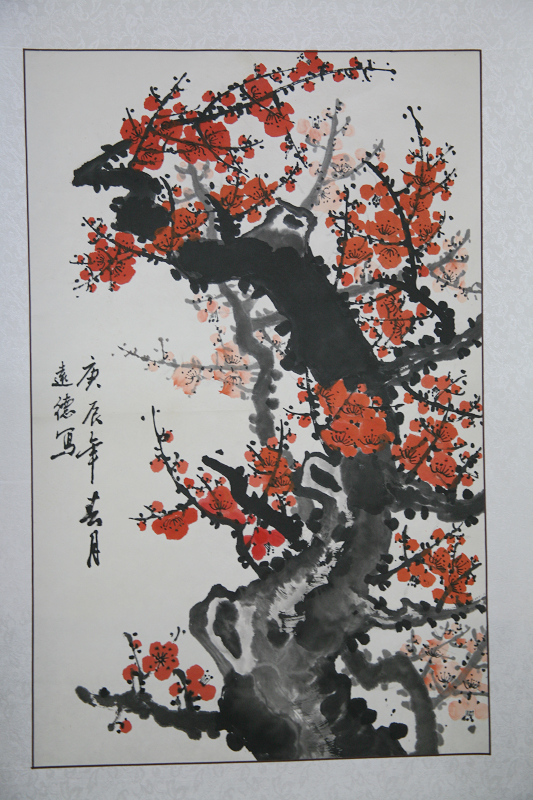 庚辰年春月
遠德写